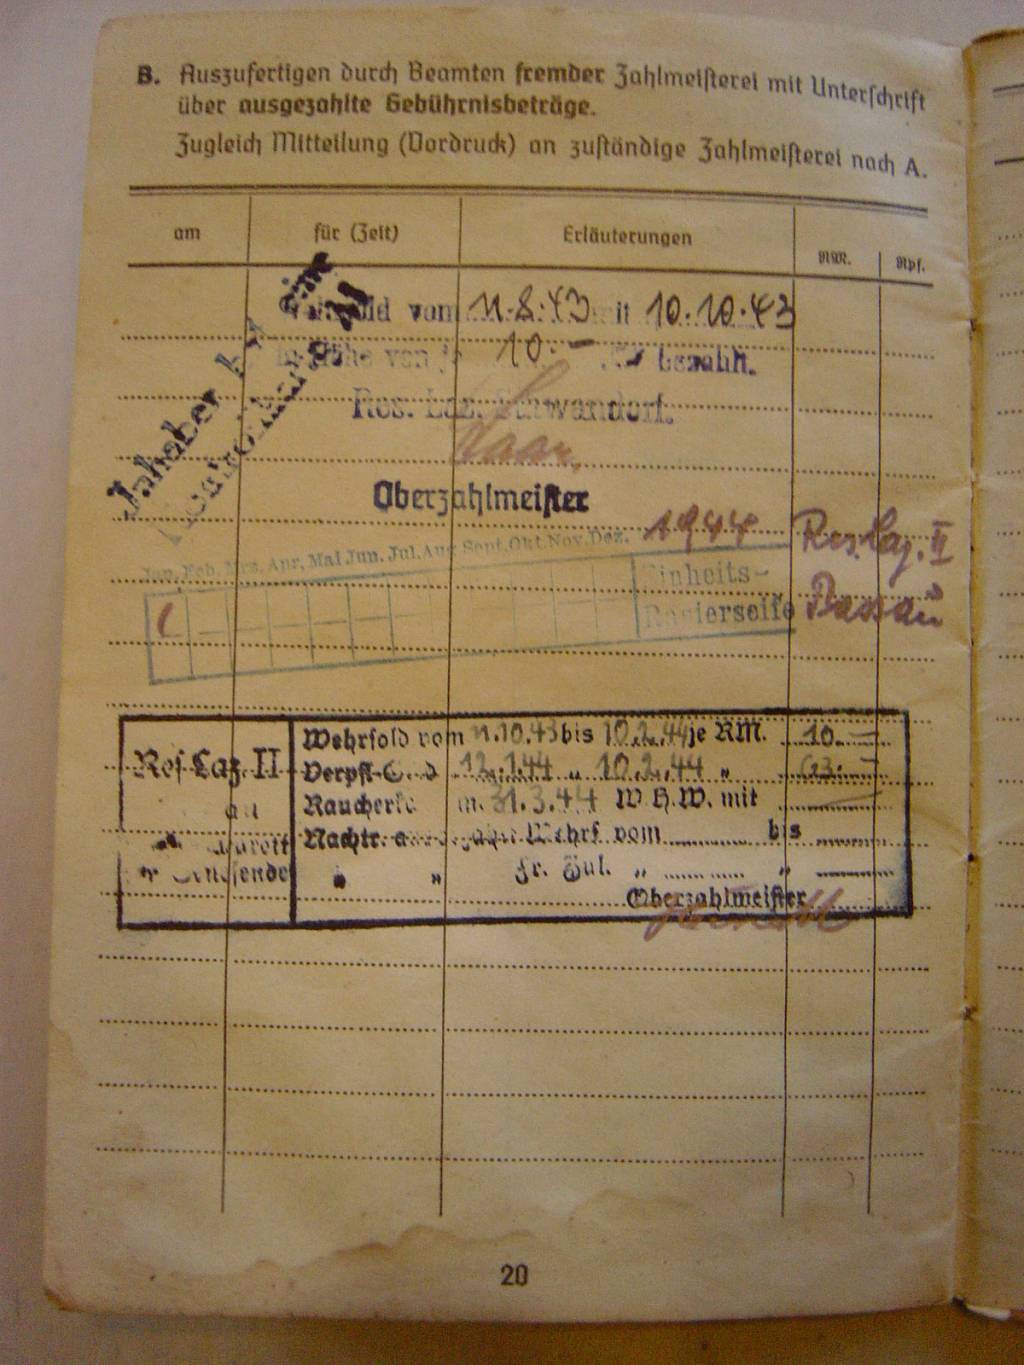 B. Auszufertigen durch Beamten fremder Zahlmeisterei mit Unterschrift
über ausgezahlte Gebührnisbeträge.
Zugleich Mitteilung (Vordruck) an zuständige Zahlmeisterei nach A.
am für (Zeit) Erläuterungen RM. Rpf.
Inhaber
vom 11.8.43 mit 10.10.43
von je 10.- bezahlt.
Res. Laz. Schwandorf.
Oberzahlmeister
Jan. Feb. Mrz. Apr. Mai Jun. Jul. Aug. Sept. Okt. Nov. Dez. 1944 Res. Laz. II
Einheits-
Rasierseife Passau
Res. Laz. II Wehrsold vom 11.10.43 bis 10.2.44 je RM. 10.-
Verpfl. 12.1.44 " 10.2.44 "
31.3.44 W.H.W. mit
Nachtr. Wehrs. vom bis
" " Fr. Zul. " "
Oberzahlmeister
20